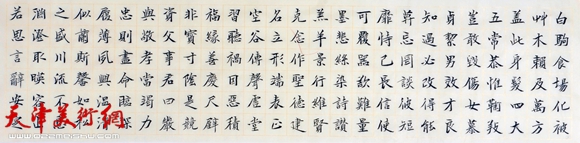 白駒食場化被
艸木賴及萬方
蓋此身髮四大
五常恭惟鞠養
豈敢毀傷女慕
貞絜男效才良
知過必改得能
莫忘罔談彼短
靡恃己長信使
可覆器欲難量
墨悲絲染詩讚
羔羊景行維賢
克念作聖德建
名立形端表正
空谷傳聲虛堂
習聽禍因惡積
福緣善慶尺璧
非寶寸陰是競
資父事君曰嚴
與敬孝當竭力
忠則盡命臨深
履薄夙興溫
似蘭斯馨如松
之盛川流不息
淵澄取暎容止
若思言辭安定
天津美術網